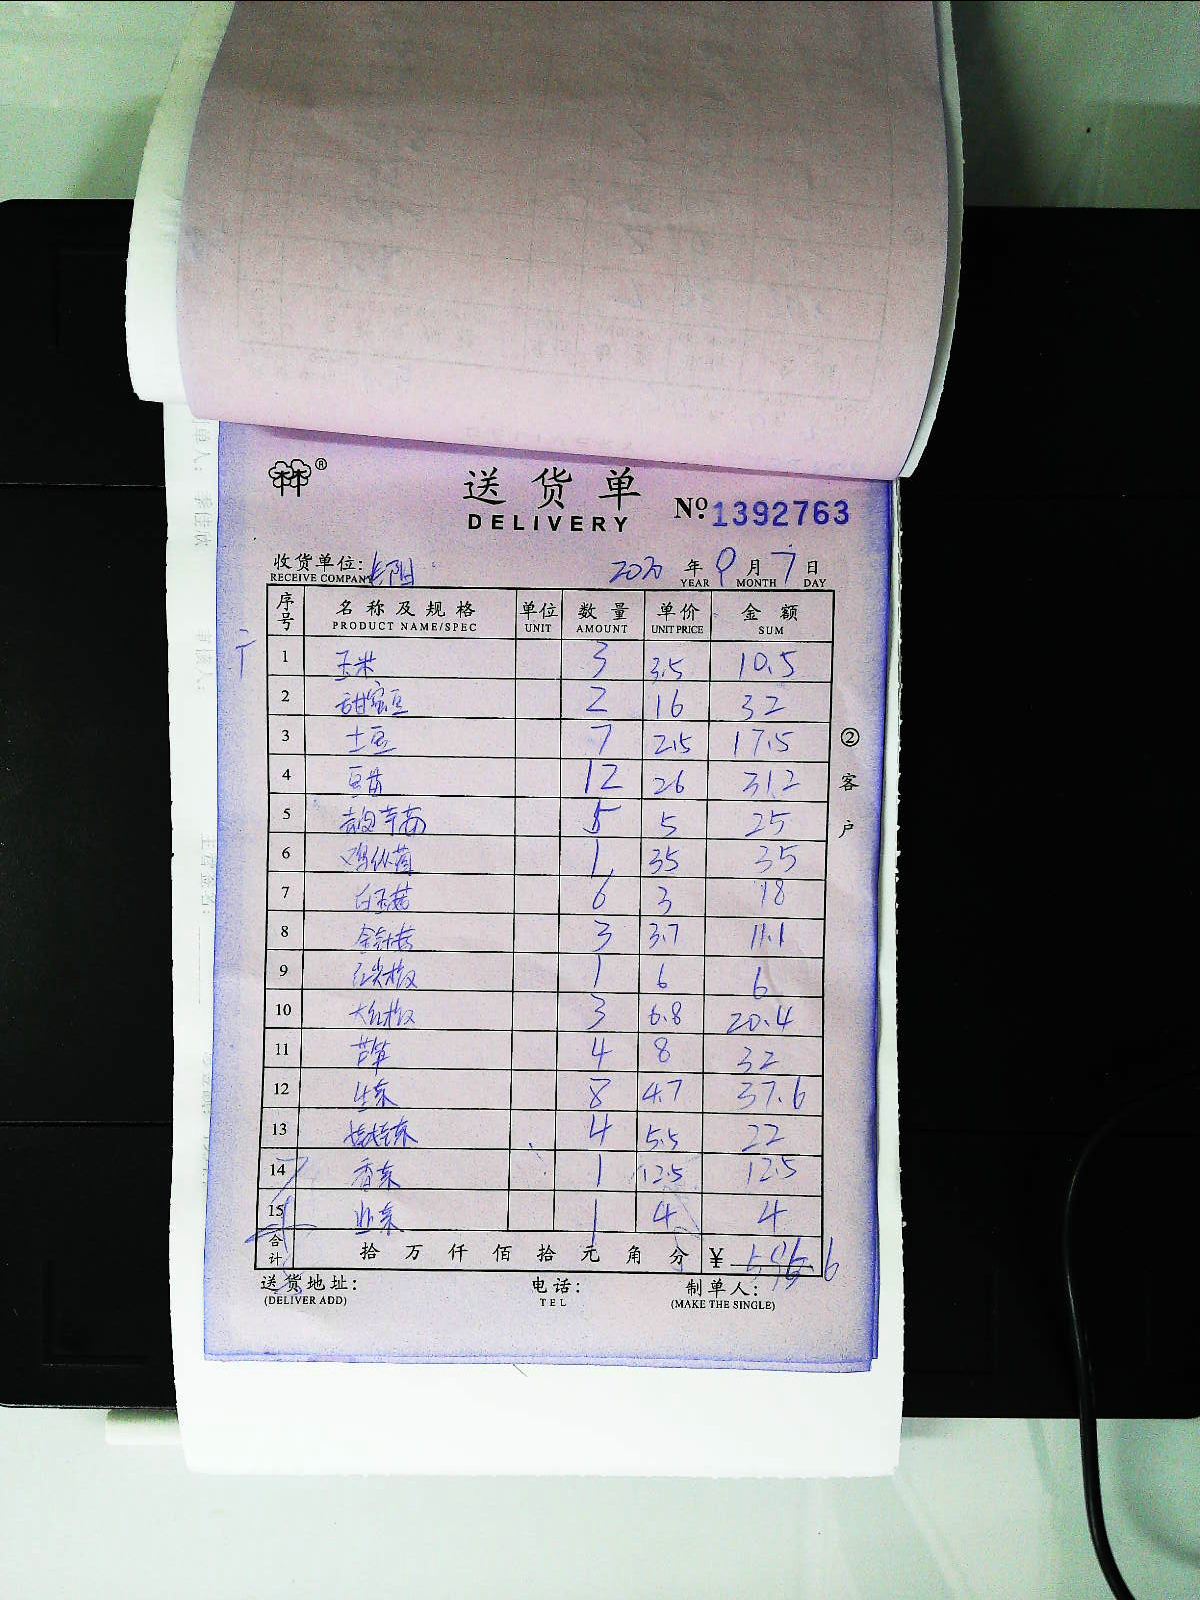 送货单
DELIVERY
No. 1392763
收货单位:
RECEIVE COMPANY
年 9 月 7 日
YEAR MONTH DAY
序号 名称及规格 单位 数量 单价 金额
PRODUCT NAME/SPEC UNIT AMOUNT UNIT PRICE SUM
1 玉米 3 3.5 10.5
2 甜蜜豆 2 16 32
3 土豆 7 2.5 17.5
4 豆苗 12 26 312
5 5 5 25
6 鸡枞菌 1 35 35
7 白玉菇 6 3 18
8 金针菇 3 3.7 11.1
9 红尖椒 1 6 6
10 大红椒 3 6.8 20.4
11 芦笋 4 8 32
12 生菜 8 4.7 37.6
13 娃娃菜 4 5.5 22
14 香菜 1 12.5 12.5
15 1 4 4
合计 拾 万 仟 佰 拾 元 角 分 ¥
②客户
送货地址: 电话: 制单人:
(DELIVER ADD) TEL (MAKE THE SINGLE)